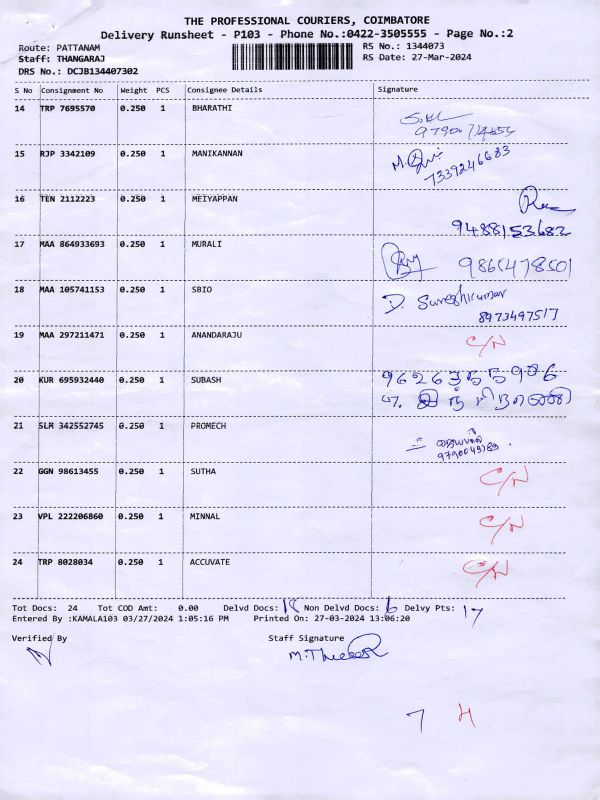 THE PROFESSIONAL COURIERS, COIMBATORE
Delivery Runsheet - P103 - Phone No.:0422-3505555 - Page No.:2
Route: PATTANAM RS No.: 1344073
Staff: THANGARAJ RS Date: 27-Mar-2024
DRS No.: DCJB134407302
S No Consignment No Weight PCS Consignee Details Signature
14 TRP 7695570 0.250 1 BHARATHI
15 RJP 3342109 0.250 1 MANIKANNAN
7339246683
16 TEN 2112223 0.250 1 MEIYAPPAN
9488153682
17 MAA 864933693 0.250 1 MURALI
9865478501
18 MAA 105741153 0.250 1 SBIO
D. Sureshkumar
8973497517
19 MAA 297211471 0.250 1 ANANDARAJU C/N
20 KUR 695932440 0.250 1 SUBASH
21 SLM 342552745 0.250 1 PROMECH
22 GGN 98613455 0.250 1 SUTHA C/N
23 VPL 222206860 0.250 1 MINNAL C/N
24 TRP 8028034 0.250 1 ACCUVATE C/N
Tot Docs: 24 Tot COD Amt: 0.00 Delvd Docs: 18 Non Delvd Docs: 6 Delvy Pts: 17
Entered By :KAMALA103 03/27/2024 1:05:16 PM Printed On: 27-03-2024 13:06:20
Verified By Staff Signature
7